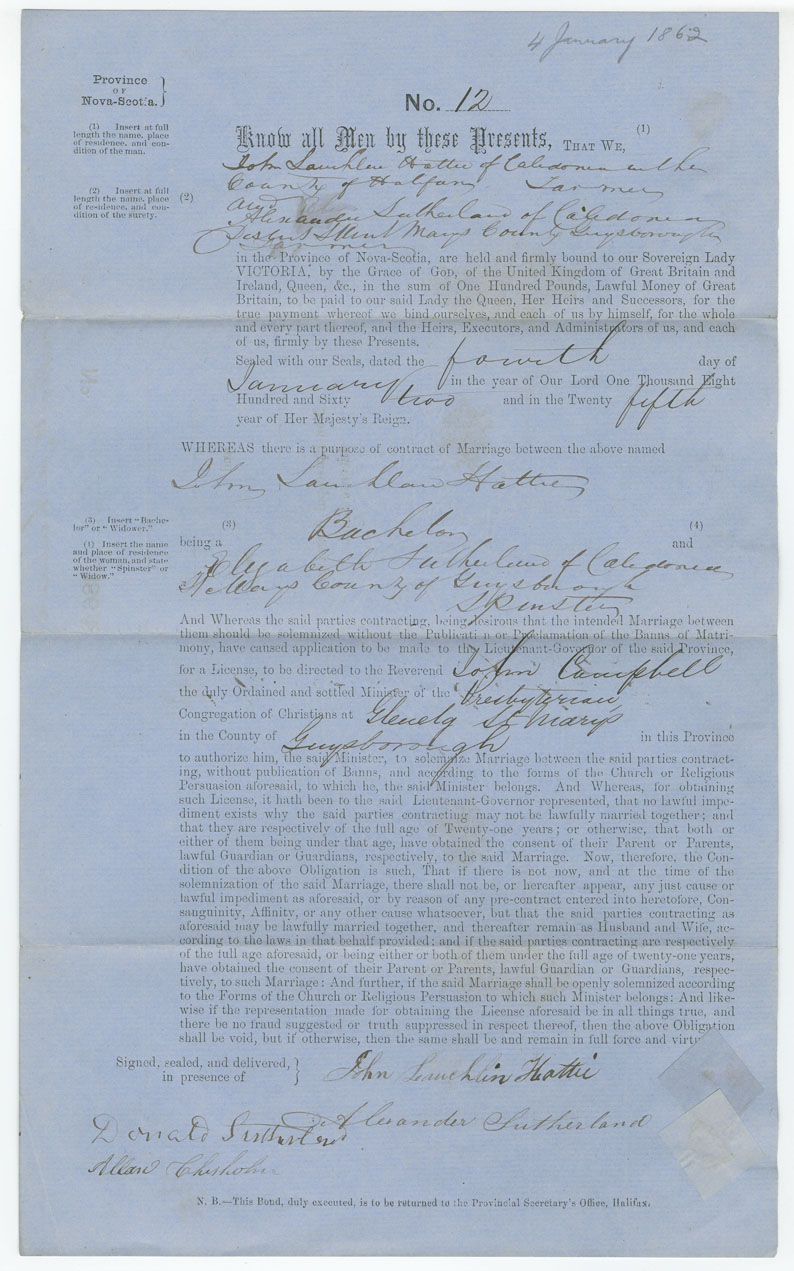 4 January 1862
Province
OF
Nova-Scotia.
(1) Insert at full
length the name, place
of residence, and con-
dition of the man.
(2) Insert at full
length the name, place
of residence, and con-
dition of the surety.
No. 12
Know all Men by these Presents, THAT WE, (1)
John Lauchlin Hattie of Caledonia in the
County of Halifax Farmer
(2) and
Alexander Sutherland of Caledonia
St Marys County Guysborough
Farmer
in the Province of Nova-Scotia, are held and firmly bound to our Sovereign Lady
VICTORIA, by the Grace of GOD, of the United Kingdom of Great Britain and
Ireland, Queen, &c., in the sum of One Hundred Pounds, Lawful Money of Great
Britain, to be paid to our said Lady the Queen, Her Heirs and Successors, for the
true payment whereof we bind ourselves, and each of us by himself, for the whole
and every part thereof, and the Heirs, Executors, and Administrators of us, and each
of us, firmly by these Presents.
Sealed with our Seals, dated the fourth day of
January in the year of Our Lord One Thousand Eight
Hundred and Sixty two and in the Twenty fifth
year of Her Majesty's Reign.
WHEREAS there is a purpose of contract of Marriage between the above named
John Lauchlan Hattie
(3) Insert "Bache-
lor" or "Widower."
(4) Insert the name
and place of residence
of the woman, and state
whether "Spinster" or
"Widow."
(3) (4)
being a Bachelor and
Elizabeth Sutherland of Caledonia
St Marys County of Guysborough
Spinster
And Whereas the said parties contracting, being desirous that the intended Marriage between
them should be solemnized without the Publicati n or Proclamation of the Banns of Matri-
mony, have caused application to be made to the Lieutenant-Governor of the said Province,
for a License, to be directed to the Reverend John Campbell
the duly Ordained and settled Minister of the Presbyterian
Congregation of Christians at Glenelg St Marys
in the County of Guysborough in this Province
to authorize him, the said Minister, to solemnize Marriage between the said parties contract-
ing, without publication of Banns, and according to the forms of the Church or Religious
Persuasion aforesaid, to which he, the said Minister belongs. And Whereas, for obtaining
such License, it hath been to the said Lieutenant-Governor represented, that no lawful impe-
diment exists why the said parties contracting may not be lawfully married together; and
that they are respectively of the full age of Twenty-one years; or otherwise, that both or
either of them being under that age, have obtained the consent of their Parent or Parents,
lawful Guardian or Guardians, respectively, to the said Marriage. Now, therefore, the Con-
dition of the above Obligation is such, That if there is not now, and at the time of the
solemnization of the said Marriage, there shall not be, or hereafter appear, any just cause or
lawful impediment as aforesaid, or by reason of any pre-contract entered into heretofore, Con-
sanguinity, Affinity, or any other cause whatsoever, but that the said parties contracting as
aforesaid may be lawfully married together, and thereafter remain as Husband and Wife, ac-
cording to the laws in that behalf provided; and if the said parties contracting are respectively
of the full age aforesaid, or being either or both of them under the full age of twenty-one years,
have obtained the consent of their Parent or Parents, lawful Guardian or Guardians, respec-
tively, to such Marriage: And further, if the said Marriage shall be openly solemnized according
to the Forms of the Church or Religious Persuasion to which such Minister belongs: And like-
wise if the representation made for obtaining the License aforesaid be in all things true, and
there be no fraud suggested or truth suppressed in respect thereof, then the above Obligation
shall be void, but if otherwise, then the same shall be and remain in full force and virtu
Signed, sealed, and delivered,
in presence of
John Lauchlin Hattie
Alexander Sutherland
Donald Sutherland
Allan Chisholm
N. B.—This Bond, duly executed, is to be returned to the Provincial Secretary's Office, Halifax.